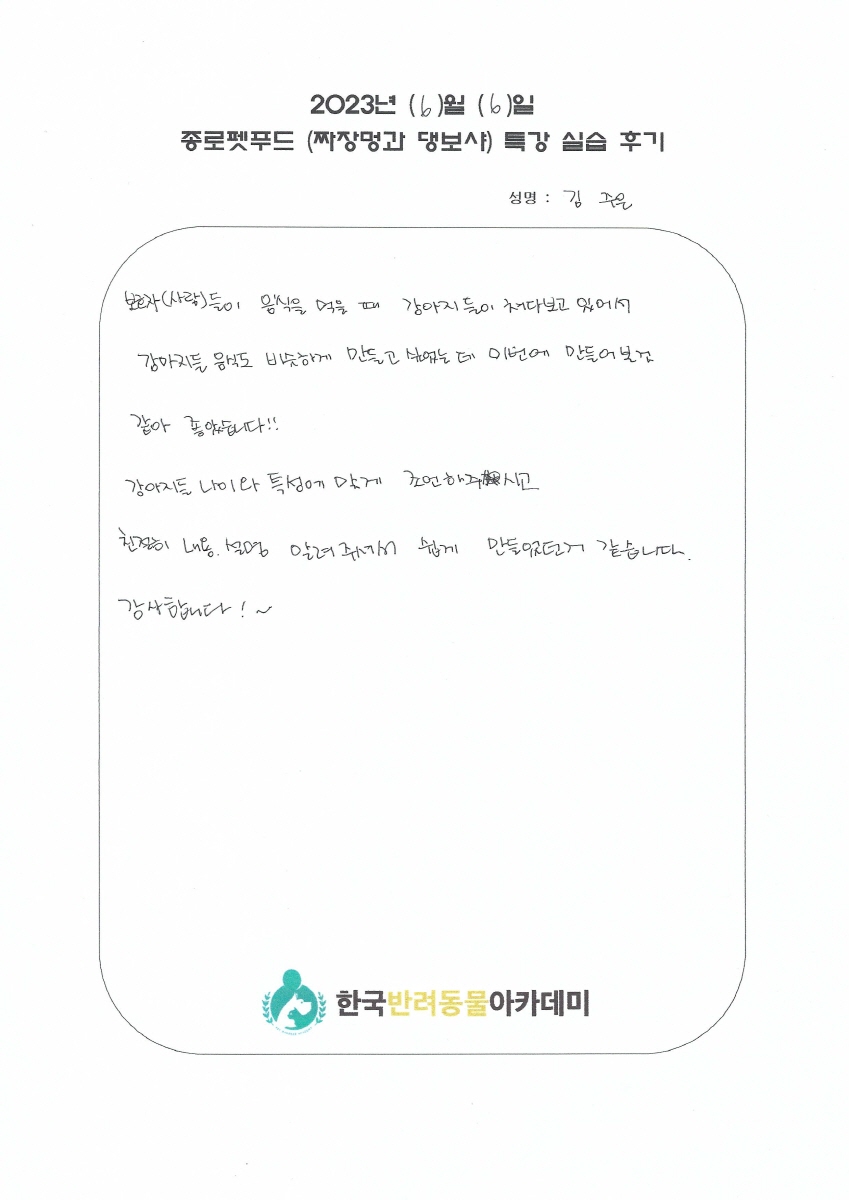 2023년 (6)월 (6)일
종로펫푸드 (짜장멍과 댕보샤) 특강 실습 후기
성명 : 김 주은
보호자(사람)들이 음식을 먹을 때 강아지들이 쳐다보고 있어서
강아지들 음식도 비슷하게 만들고 싶었는데 이번에 만들어보것
같아 좋았습니다!!
강아지들 나이와 특성에 맞게 조언해주시고
친절히 내용.설명 알려주셔서 쉽게 만들었던거 같습니다.
감사합니다!~
한국반려동물아카데미